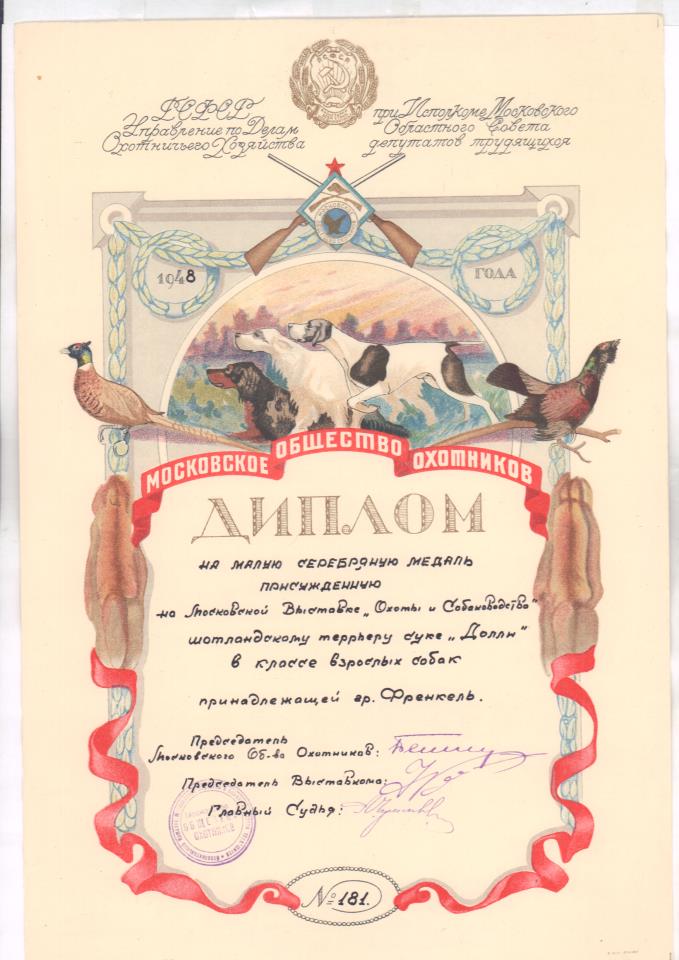 РСФСР
Управление по Делам
Охотничьего Хозяйства
при Исполкоме Московского
Областного Совета
депутатов трудящихся
МОСКОВСКОЕ
1948
ГОДА
МОСКОВСКОЕ ОБЩЕСТВО ОХОТНИКОВ
ДИПЛОМ
НА МАЛУЮ СЕРЕБРЯНУЮ МЕДАЛЬ
ПРИСУЖДЕННУЮ
на Московской Выставке „Охоты и Собаководства"
шотландскому террьеру суке „Долли"
в классе взрослых собак
принадлежащей гр. Френкель.
Председатель
Московского Об-ва Охотников:
Председатель Выставкома:
Главный Судья:
ОХОТНИКОВ
№ 181.